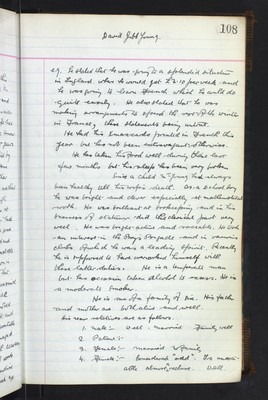 108
David Gibb Young.
eg. He stated that he was going to a splendid situation
in England where he would get £3-10 per week and
he was going to learn French which he could do
quite easily. He also stated that he was
making arrangements to spend the rest of the winter
in France, these statements being untrue.
He had his
year but has not been extravagant otherwise.
He has taken his food well during these last
few months but his sleep has been very broken.
As a child Dr Young had always
been healthy till his wife's death. As a school boy
he was bright and clever especially at mathematical
work. He was brilliant at bookkeeping and in his
business of did this clerical part very
well. He was bright active and sociable. He took
an interest in the Boys Brigade and in various
clubs of which he was a leading spirit. Really
he is supposed to have overworked himself with
these latter duties. He is a temperate man
but has occasionally taken alcohol to excess. He is
a moderate smoker.
He is one of a family of six. His father
and mother are both alive and well.
His near relatives are as follows:
1. Male:- Well. married Family well
2. Patient:-
3. Female:- married
4. Female:- Considered "odd". Was
well.